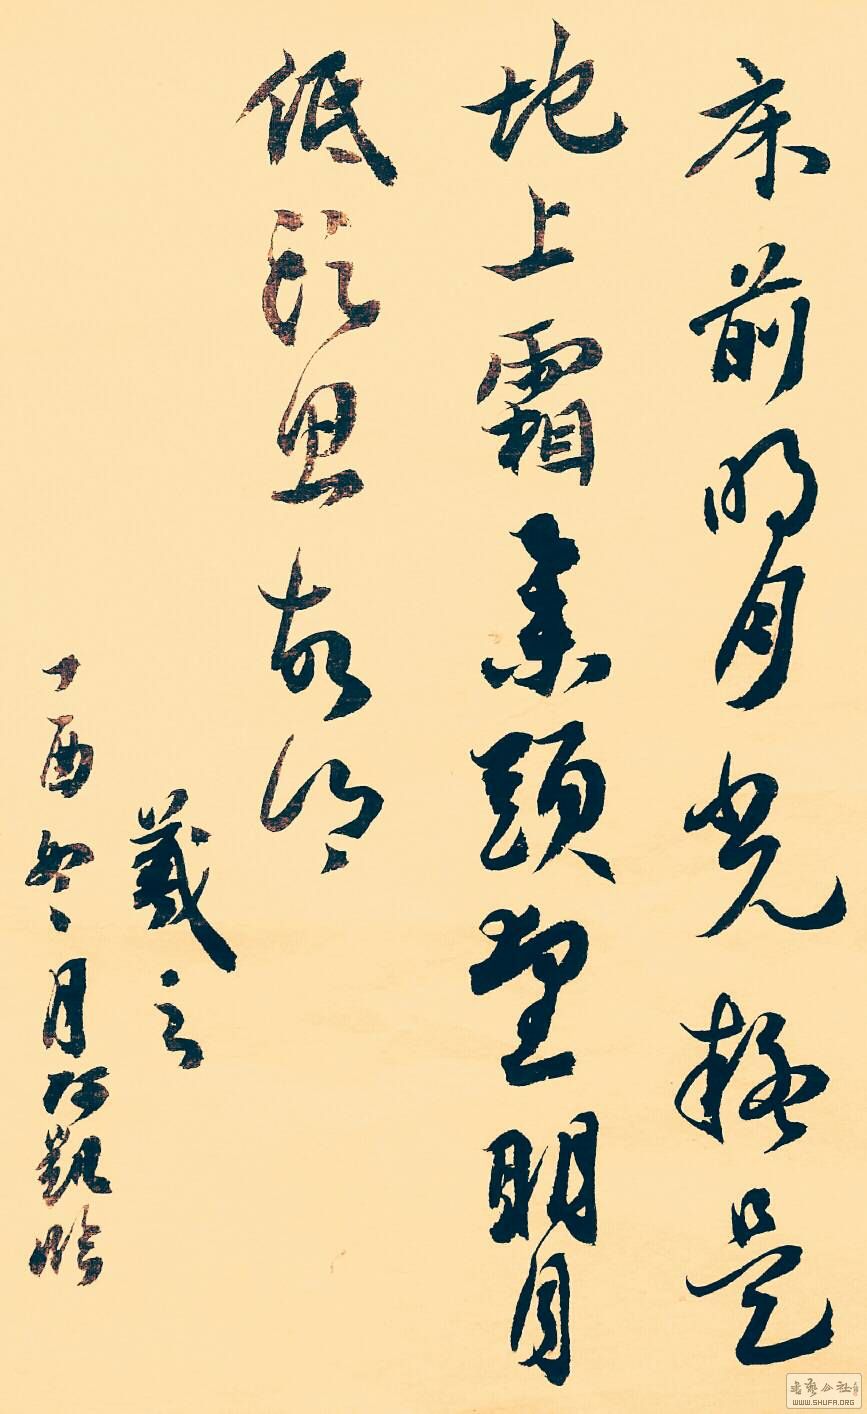 床前明月光疑是
地上霜舉頭望明月
低頭思故鄉
羲之
丁酉 月 凱
书艺公社
WWW.SHUFA.ORG